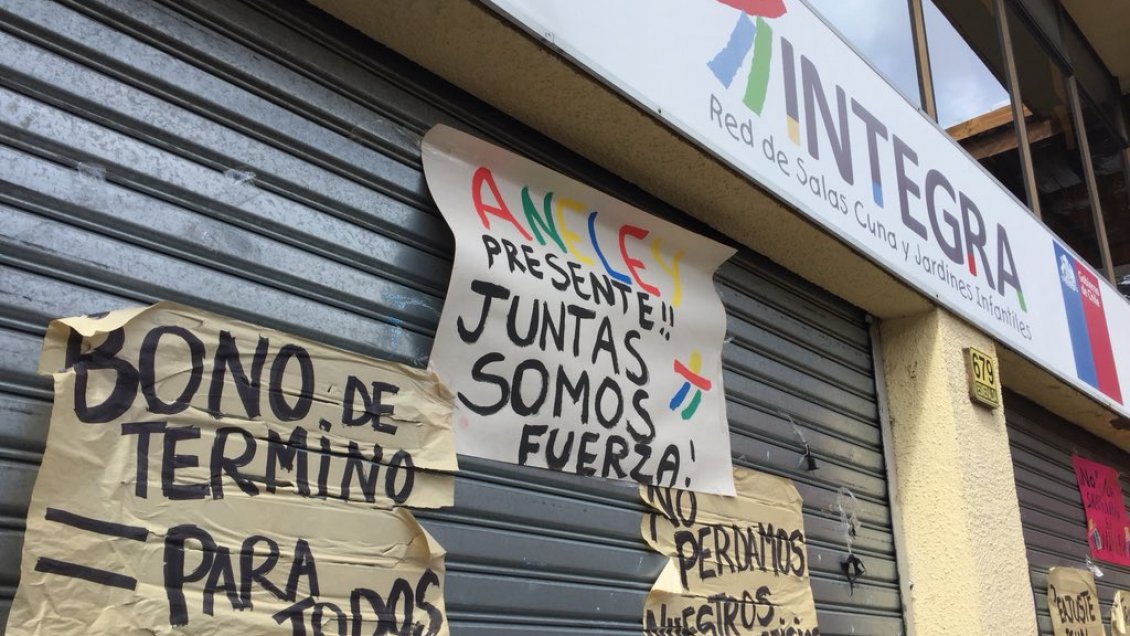 INTEGRA
Red de Salas Cuna y Jardines Infantiles
Gobierno
de Chile
679
ANELEY
PRESENTE!!
JUNTAS
SOMOS
FUERZA!
BONO DE
TERMINO
= PARA
TODOS
NO
PERDAMOS
NUESTROS